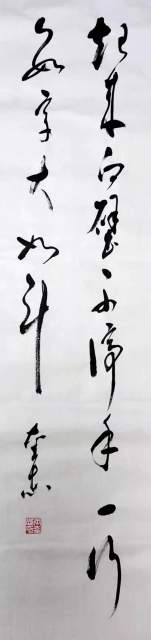 起来向壁不停手一行
数字大如斗